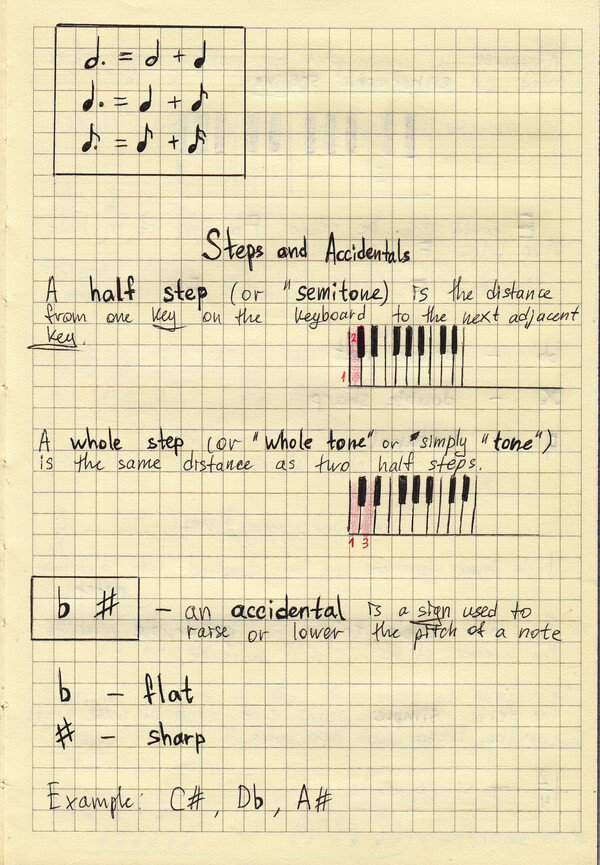 𝅗𝅥. = 𝅗𝅥 + 𝅘𝅥
𝅘𝅥. = 𝅘𝅥 + 𝅘𝅥𝅮
𝅘𝅥𝅮. = 𝅘𝅥𝅮 + 𝅘𝅥𝅯
Steps and Accidentals
A half step (or "semitone) is the distance
from one key on the keyboard to the next adjacent
key.
2
1
A whole step (or "whole tone" or "simply "tone")
is the same distance as two half steps.
1 3
b # – an accidental is a sign used to
raise or lower the pitch of a note
b – flat
# – sharp
Example: C#, Db, A#